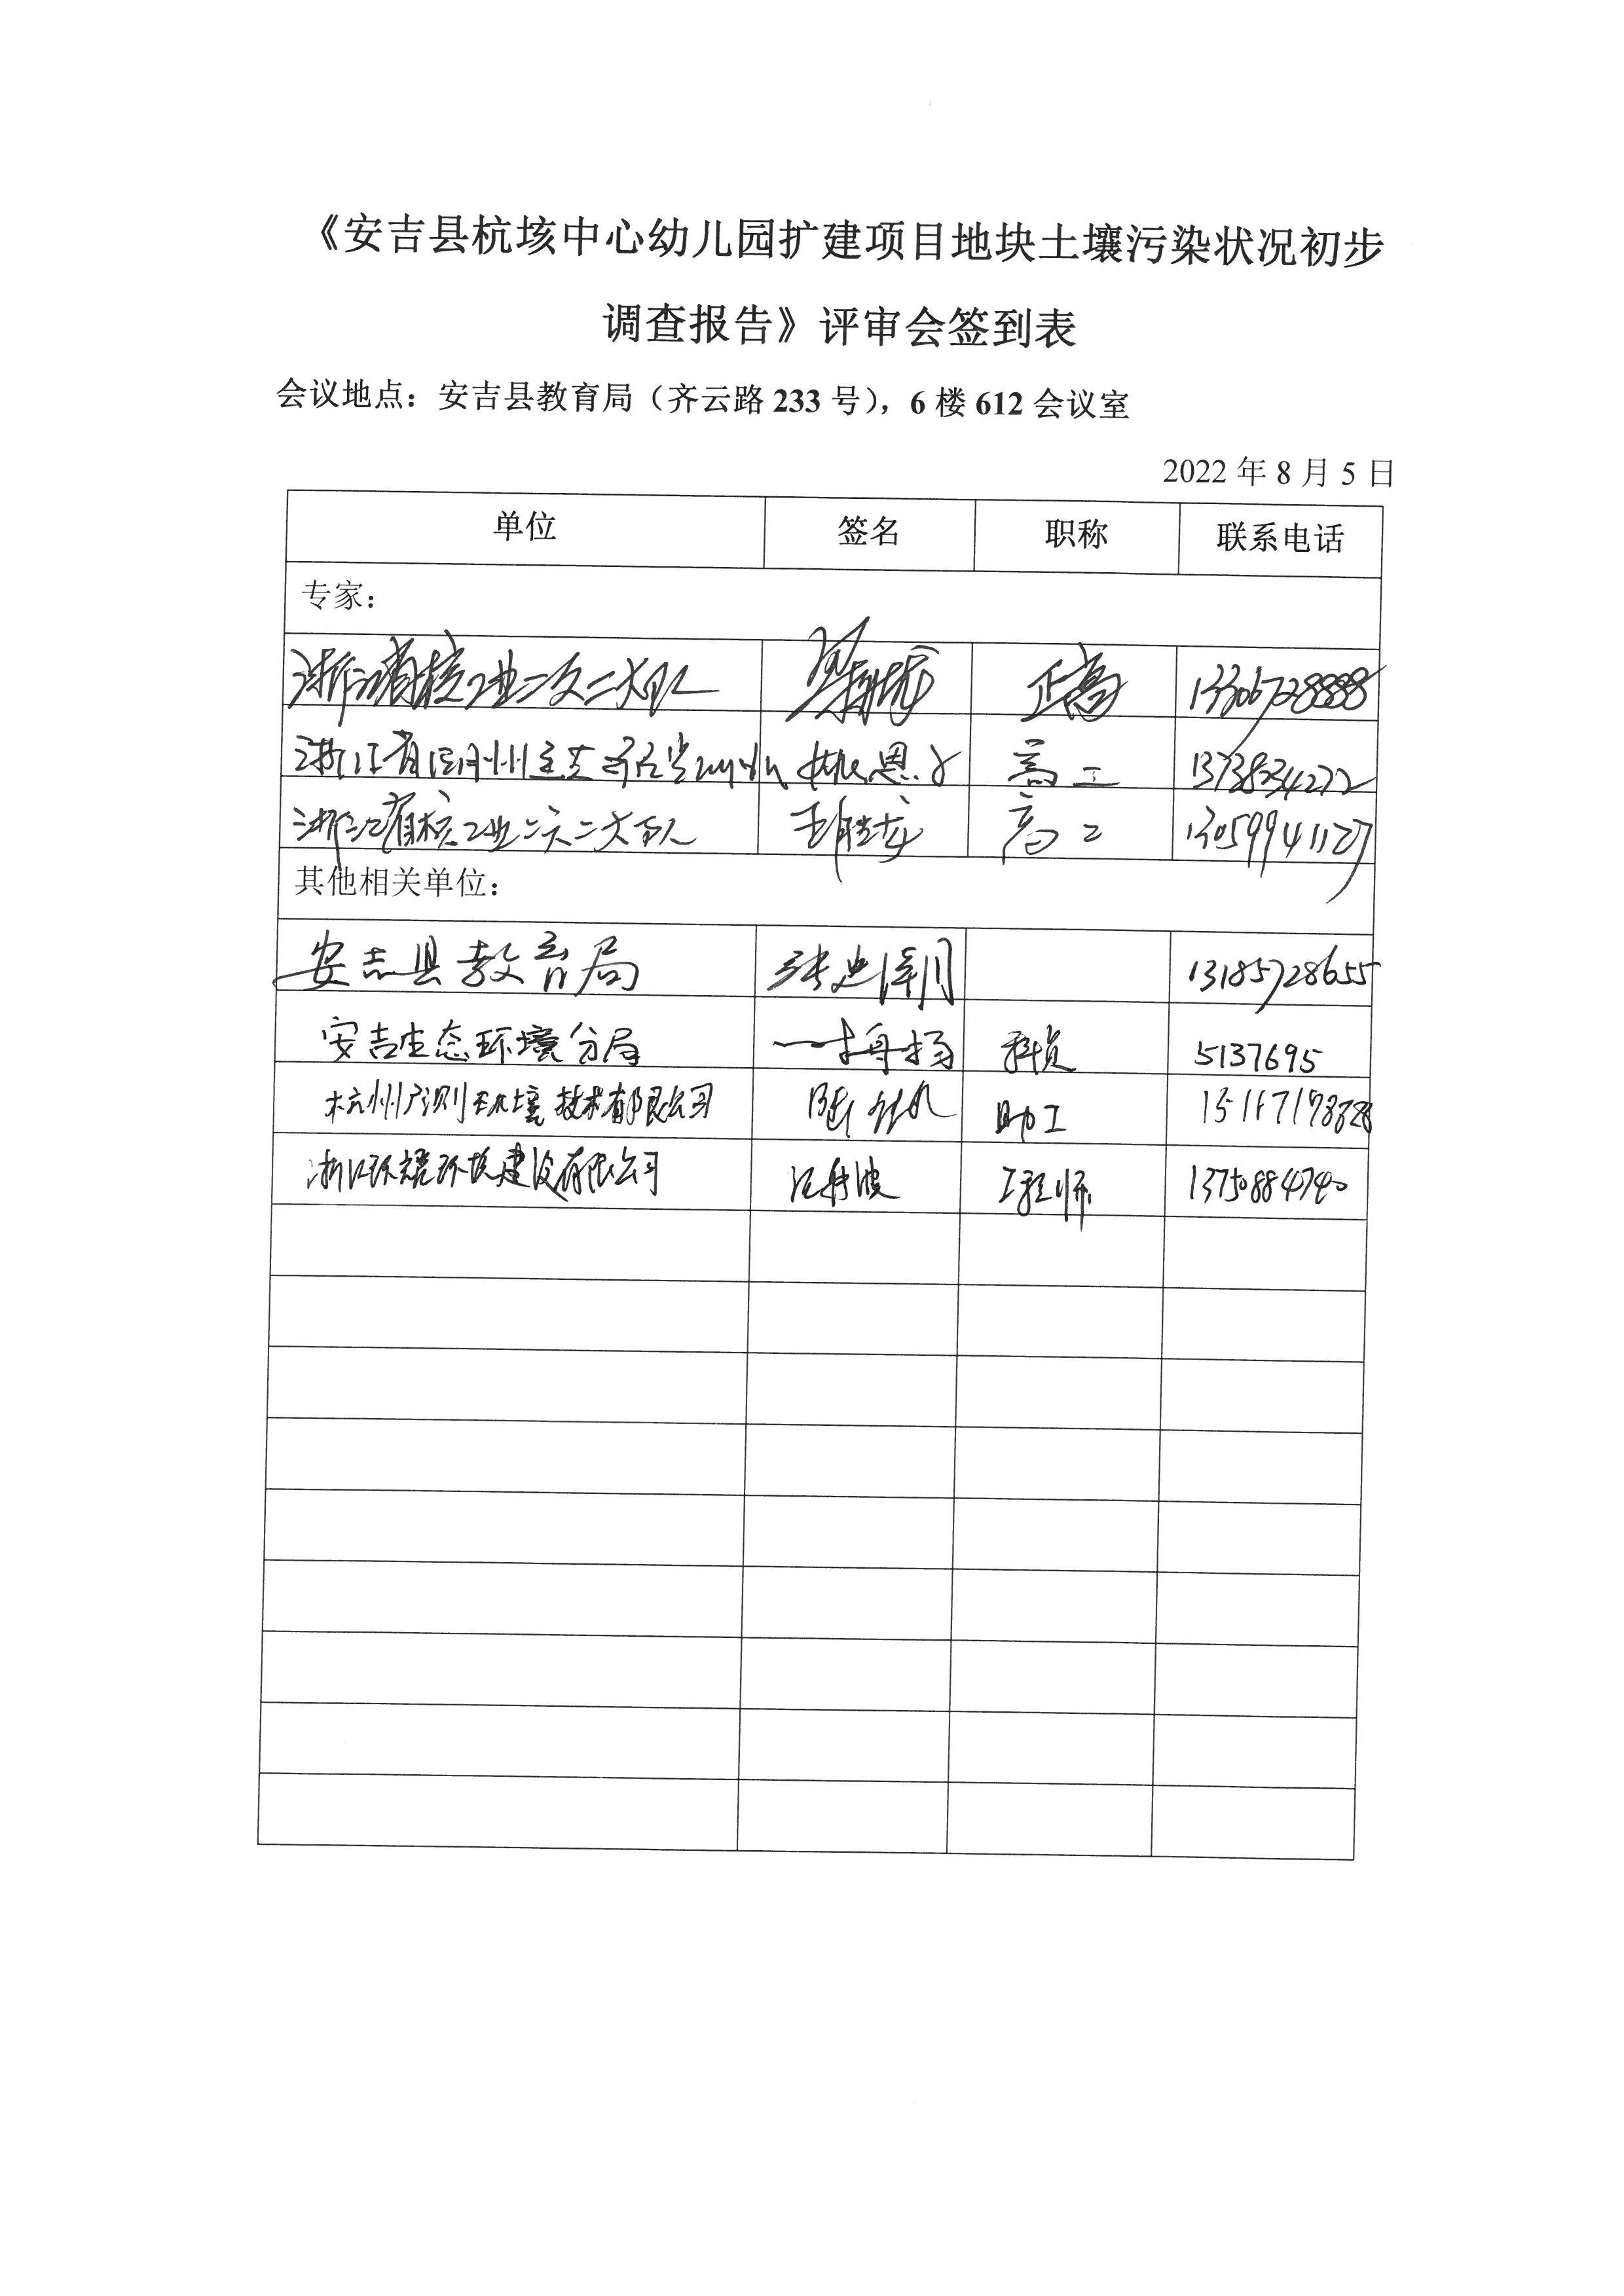 《安吉县杭垓中心幼儿园扩建项目地块土壤污染状况初步
调查报告》评审会签到表
会议地点：安吉县教育局（齐云路 233 号），6 楼 612 会议室
2022 年 8 月 5 日
单位 签名 职称 联系电话
专家：
浙江省核工业二六二大队 正高 13306728888
浙江省 高工
浙江省核工业二六二大队 王胜龙 高工
其他相关单位：
安吉县教育局 13185728655
安吉生态环境分局 科员 5137695
杭州广测环境技术有限公司 助工
浙江环耀环境建设有限公司 工程师 13750884740